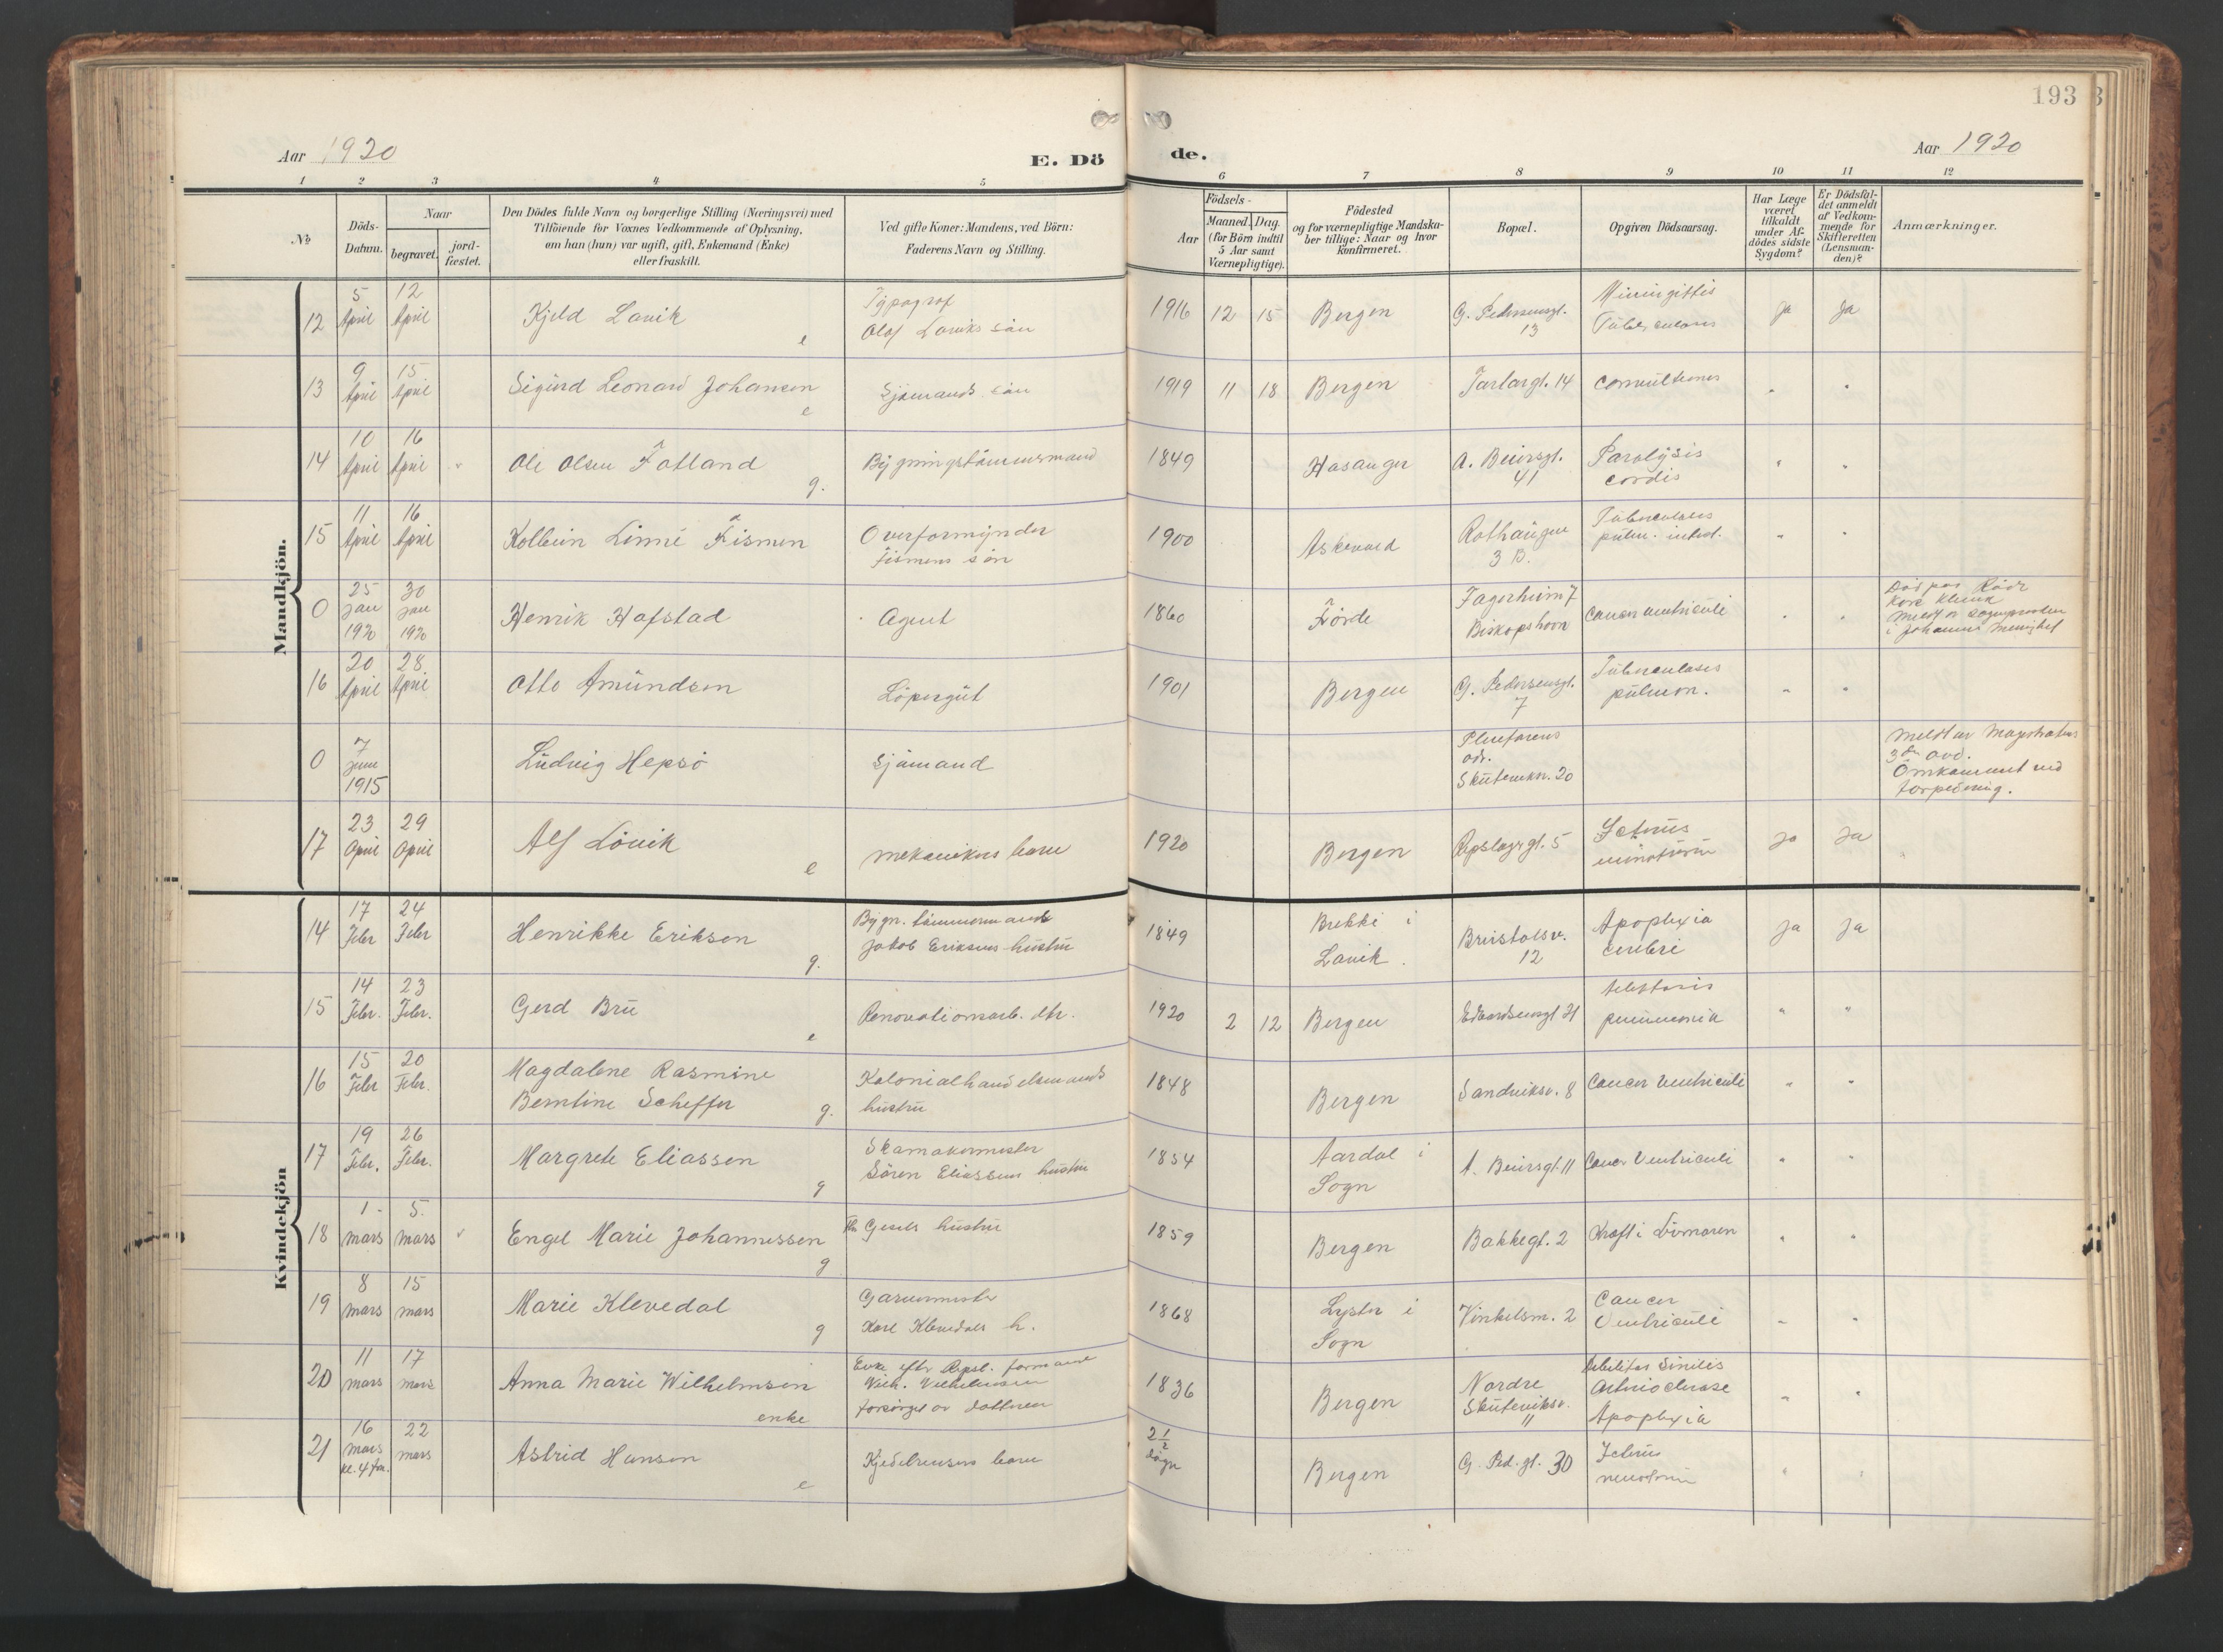 193
Aar 1920
E. Dö
de.
Aar 1920
1 2 3 4 5 6 7 8 9 10 11 12
№
Döds-
Datum.
Naar
begravet.
jord-
fæstet.
Den Dödes fulde Navn og borgerlige Stilling (Næringsvei) med
Tilföiende for Voxnes Vedkommende af Oplysning,
om han (hun) var ugift, gift, Enkemand (Enke)
eller fraskilt.
Ved gifte Koner: Mandens, ved Börn:
Faderens Navn og Stilling.
Födsels-
Aar
Maaned. Dag.
(for Börn indtil
5 Aar samt
Værnepligtige).
Födested
og for værnepligtige Mandska-
ber tillige: Naar og hvor
konfirmeret.
Bopæl.
Opgiven Dödsaarsag.
Har Læge
været
tilkaldt
under Af-
dödes sidste
Sygdom?
Er Dödsfal-
det anmeldt
af Vedkom-
mende for
Skifteretten
(Lensman-
den)?
Anmærkninger.
Mandkjön.
12 5 April 12 April Kjeld Lavik e Typograf
Olaf Laviks sön 1916 12 15 Bergen G. Pedersensgt.
13 Miningittis
Tuberculosus ja Ja
13 9 April 15 April Sigurd Leonard Johansen e Sjömands sön 1919 11 18 Bergen Tartargt. 14 Convultiones " "
14 10 April 16 April " Ole Olsen Fatland g. Bygningstömmermand 1849 Hosanger A. Beiersgt.
41 Paralysis
cordis " "
15 11 April 16 April Kolbein Linné Fismen Overformynder
Fismens sön 1900 Askevold Rothaugen
3 B. Tuberculosis
pulm. intest. " "
0 25 jan 1920 30 jan 1920 Henrik Hafstad Agent 1860 Förde Fagerheim 7
Biskopshavn Cancer ventriculi " "
Död paa Röde
Kors Klinik
Meldt av sognepresten
i Johannes Menighet
16 20 April 28 April Otto Amundsen Löpergut 1901 Bergen G. Pedersensgt.
7 Tuberculosis
pulmon. " "
0 7 juni 1915 Ludvig Hepsö Sjömand
adr.
Skutevikv. 20
Meldt av Magistratens
3die avd.
Omkommet ved
torpedering.
17 23 April 29 April Alf Lövik e mekanikers barn 1920 Bergen Repslagergt. 5 Icterus
neonatorum ja Ja
Kvindekjön
14 17 Febr 24 Febr Henrikke Eriksen g. Bygn. tömmermand
Jakob Eriksens hustru 1849 Brekke i
Lavik. Breistölsv.
12 Apoplexia
cerebri ja Ja
15 14 Febr. 23 Febr. Gerd Bru e Renovationsarb. dtr. 1920 2 12 Bergen Edvardsensgt 31 Atelektasis
pneumonia " "
16 15 Febr 20 Febr. Magdalene Rasmine
Berntine Scheffer g. Kolonialhandelsmands
hustru 1848 Bergen Sandviksv. 8 Cancer Ventriculi " "
17 19 Febr. 26 Febr. Margrete Eliassen g Skomakermester
Sören Eliassens hustru 1854 Aardal i
Sogn A. Beiersgt. 11 Cancer Ventriculi " "
18 1 mars 5. mars Engel Marie Johannessen g hustru 1859 Bergen Bakkegt. 2 Kræft i Livmoren " "
19 8 mars 15 mars Marie Klevedal g Garvermester
Karl Klevedals h. 1868 Lyster i
Sogn Vinkelsm. 2 Cancer
Ventriculi " "
20 11 mars 17 mars Anna Marie Wilhelmsen enke Enke efter Repsl. formand
Vilh. Vilhelmsen
forsörget av dattren 1836 Bergen Nordre
Skuteviksv.
11 Debilitas Sinilis
Arteriosclerose
Apoplexia " "
21 16 mars kl. 4 fm. 22 mars Astrid Hansen e Kjedelrensers barn 2 1/2
dögn Bergen G. Ped. gt. 30 Icterus
neonatorum " "